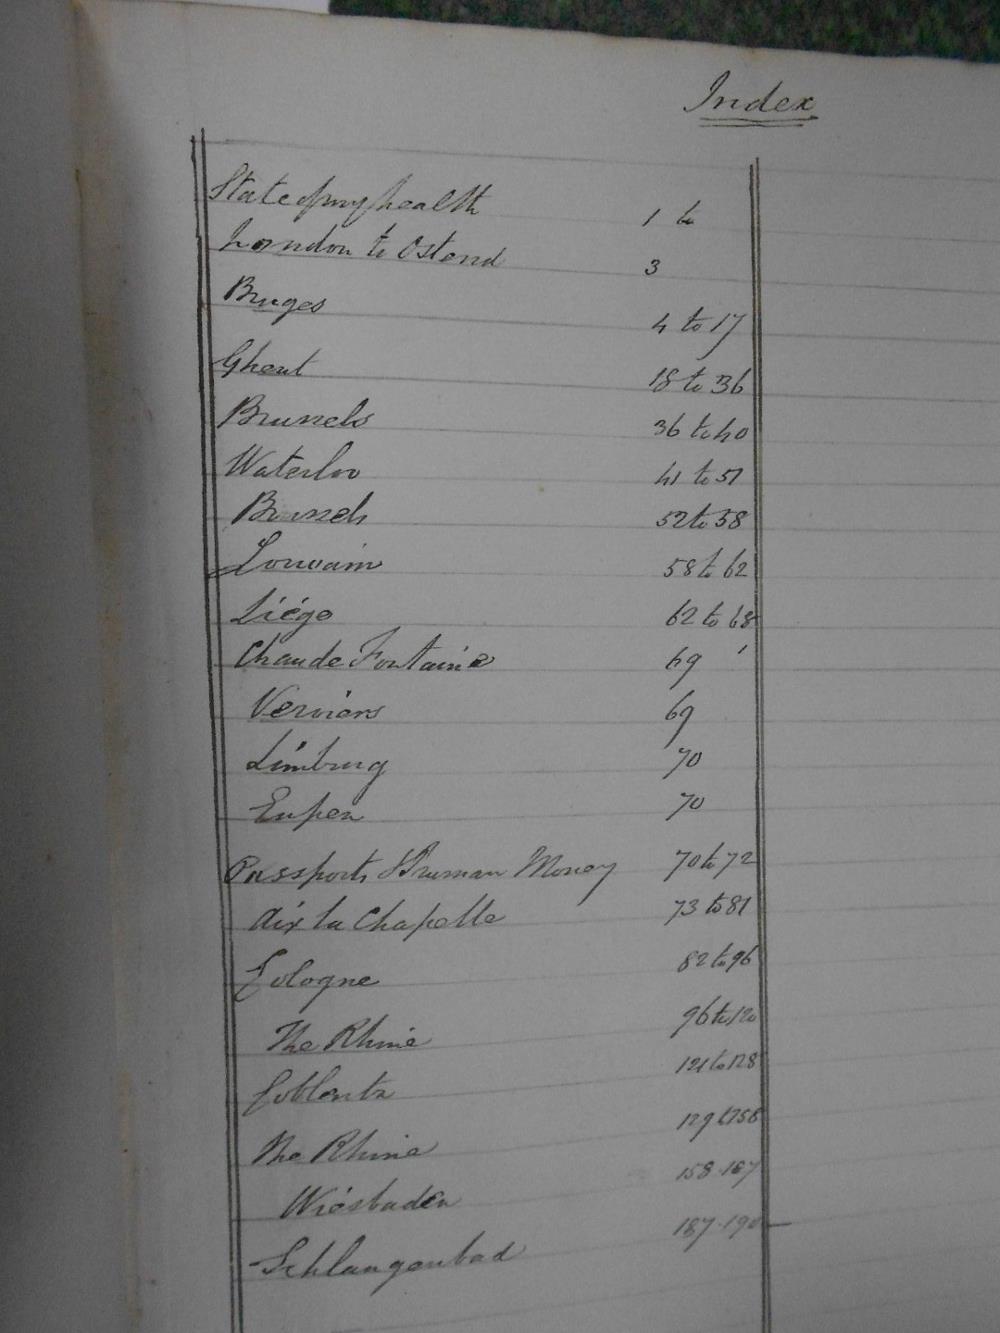 Index
State of my health 1 to
London to Ostend 3
Bruges 4 to 17
Ghent 18 to 36
Brussels 36 to 40
Waterloo 41 to 51
Brussels 52 to 58
Louvain 58 to 62
Liége 62 to 68
Chaude Fontaine 69
Verviers 69
Limburg 70
Eupen 70
Passports & Prussian Money 70 to 72
Aix la Chapelle 73 to 81
Cologne 82 to 96
The Rhine 96 to 120
Coblentz 121 to 128
The Rhine 129 to 158
Wiesbaden 158.187
Schlangenbad 187.190